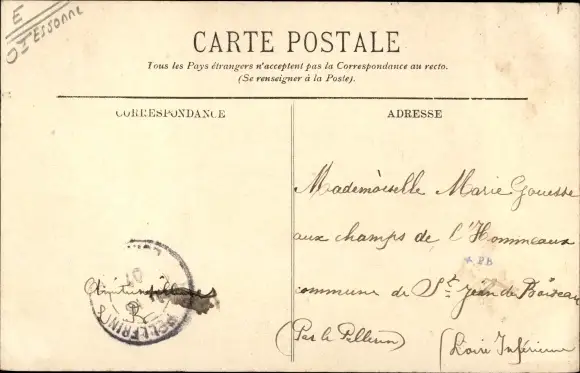 E
ESSONNE
CARTE POSTALE
Tous les Pays étrangers n'acceptent pas la Correspondance au recto.
(Se renseigner à la Poste).
CORRESPONDANCE
ADRESSE
Mademoiselle Marie Gouesse
aux champs de l'Hommeaux
commune de St Jean de Boiseau
(Par le Pellerin)
(Loire Inférieure